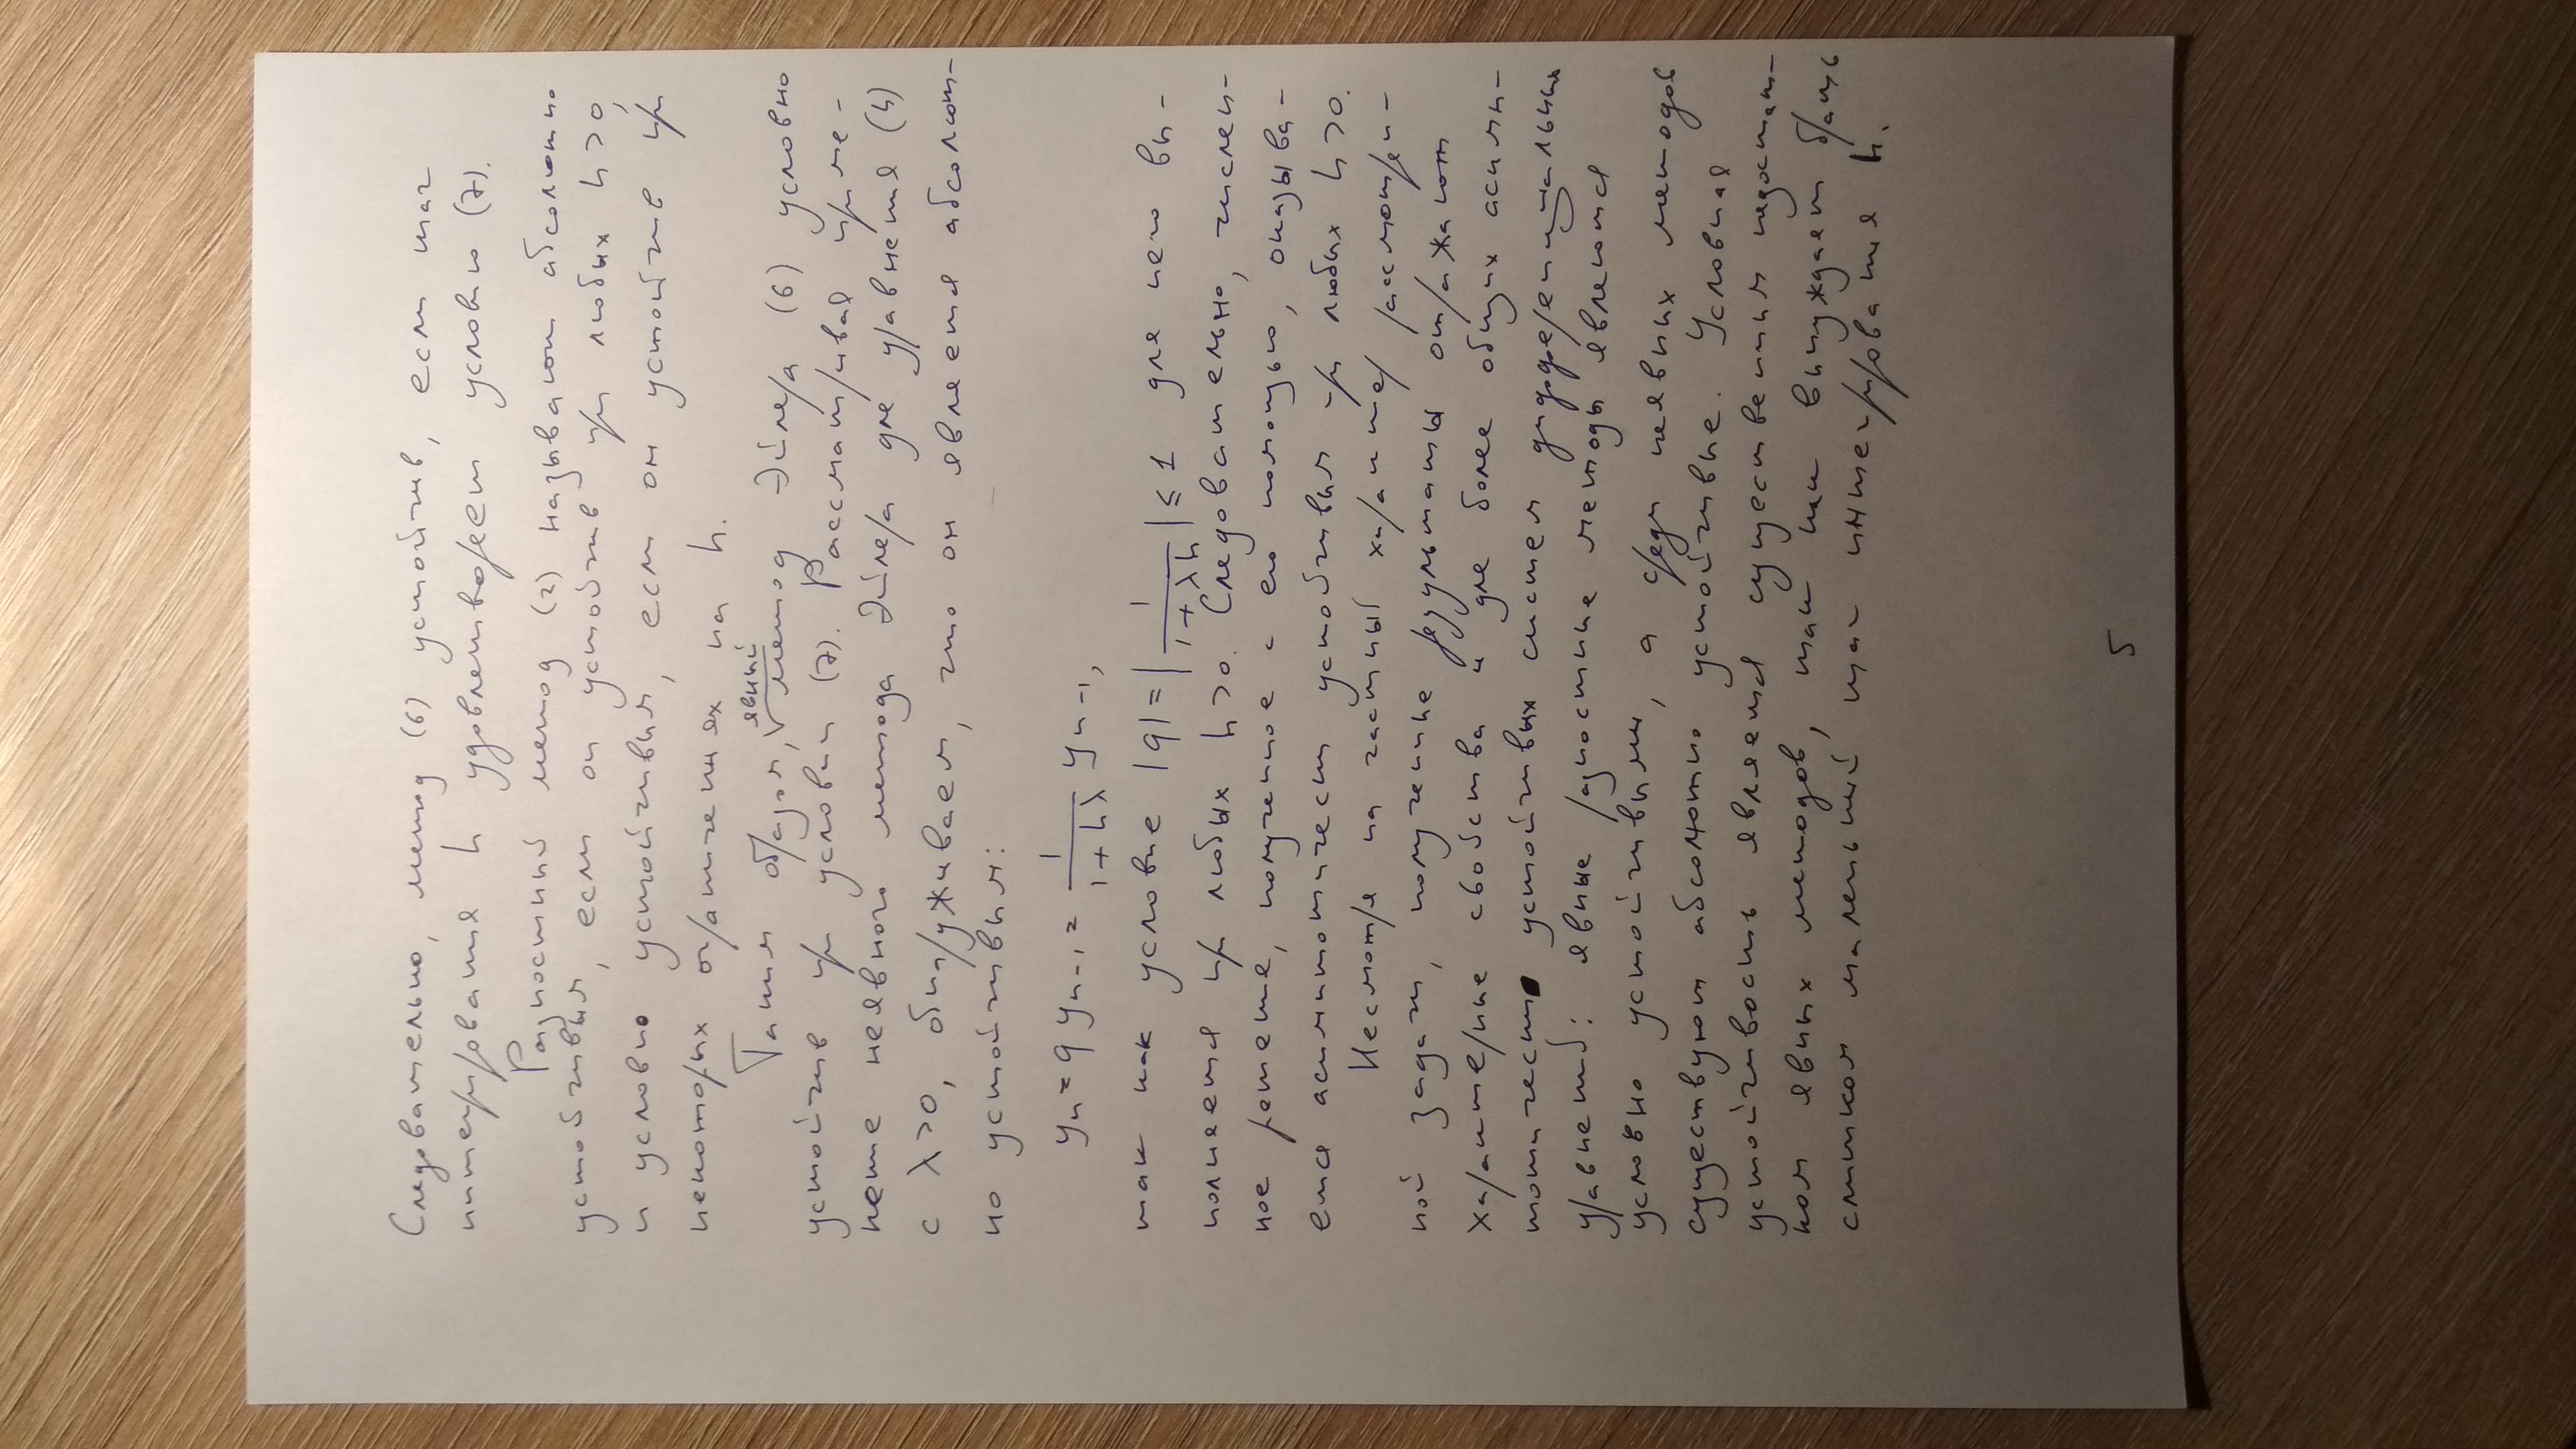 Следовательно, метод (6) устойчив, если шаг
интегрирования h удовлетворяет условию (7).
Разностный метод (2) называют абсолютно
устойчивым, если он устойчив при любых h > 0,
и условно устойчивым, если он устойчив при
некоторых ограничениях на h.
явный
Таким образом, √ метод Эйлера (6) условно
устойчив при условии (7). Рассматривая приме-
нение неявного метода Эйлера для уравнения (4)
с λ > 0, обнаруживаем, что он является абсолют-
но устойчивым:
yₙ = q yₙ₋₁ = 1/(1 + hλ) yₙ₋₁,
так как условие |q| = |1/(1 + λh)| ≤ 1 для него вы-
полняется при любых h > 0. Следовательно, числен-
ное решение, полученное с его помощью, оказыва-
ется асимптотически устойчивым при любых h > 0.
Несмотря на частный характер рассмотрен-
ной задачи, полученные результаты отражают
характерные свойства и для более общих асимп-
тотически устойчивых систем дифференциальных
уравнений: явные разностные методы являются
условно устойчивыми, а среди неявных методов
существуют абсолютно устойчивые. Условная
устойчивость является существенным недостат-
ком явных методов, так как вынуждает брать
слишком маленький шаг интегрирования h.
5